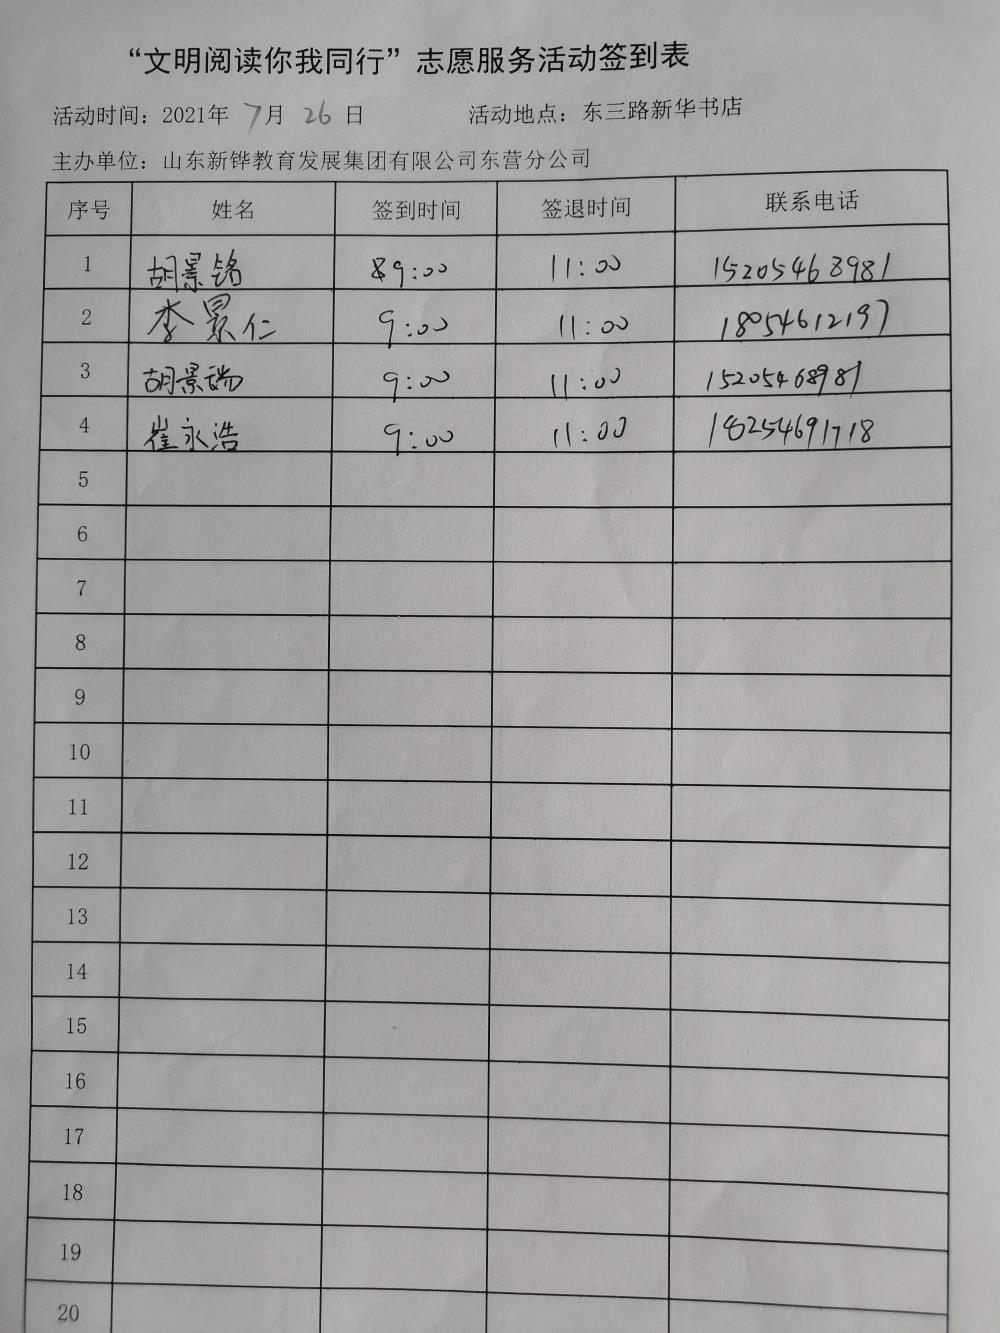 “文明阅读你我同行”志愿服务活动签到表
活动时间：2021年 7月 26 日 活动地点：东三路新华书店
主办单位：山东新铧教育发展集团有限公司东营分公司
序号 姓名 签到时间 签退时间 联系电话
1 胡景铭 9:00 11:00 15205468981
2 李景仁 9:00 11:00 18054612197
3 胡景瑞 9:00 11:00 15205468981
4 崔永浩 9:00 11:00 18254691718
5
6
7
8
9
10
11
12
13
14
15
16
17
18
19
20